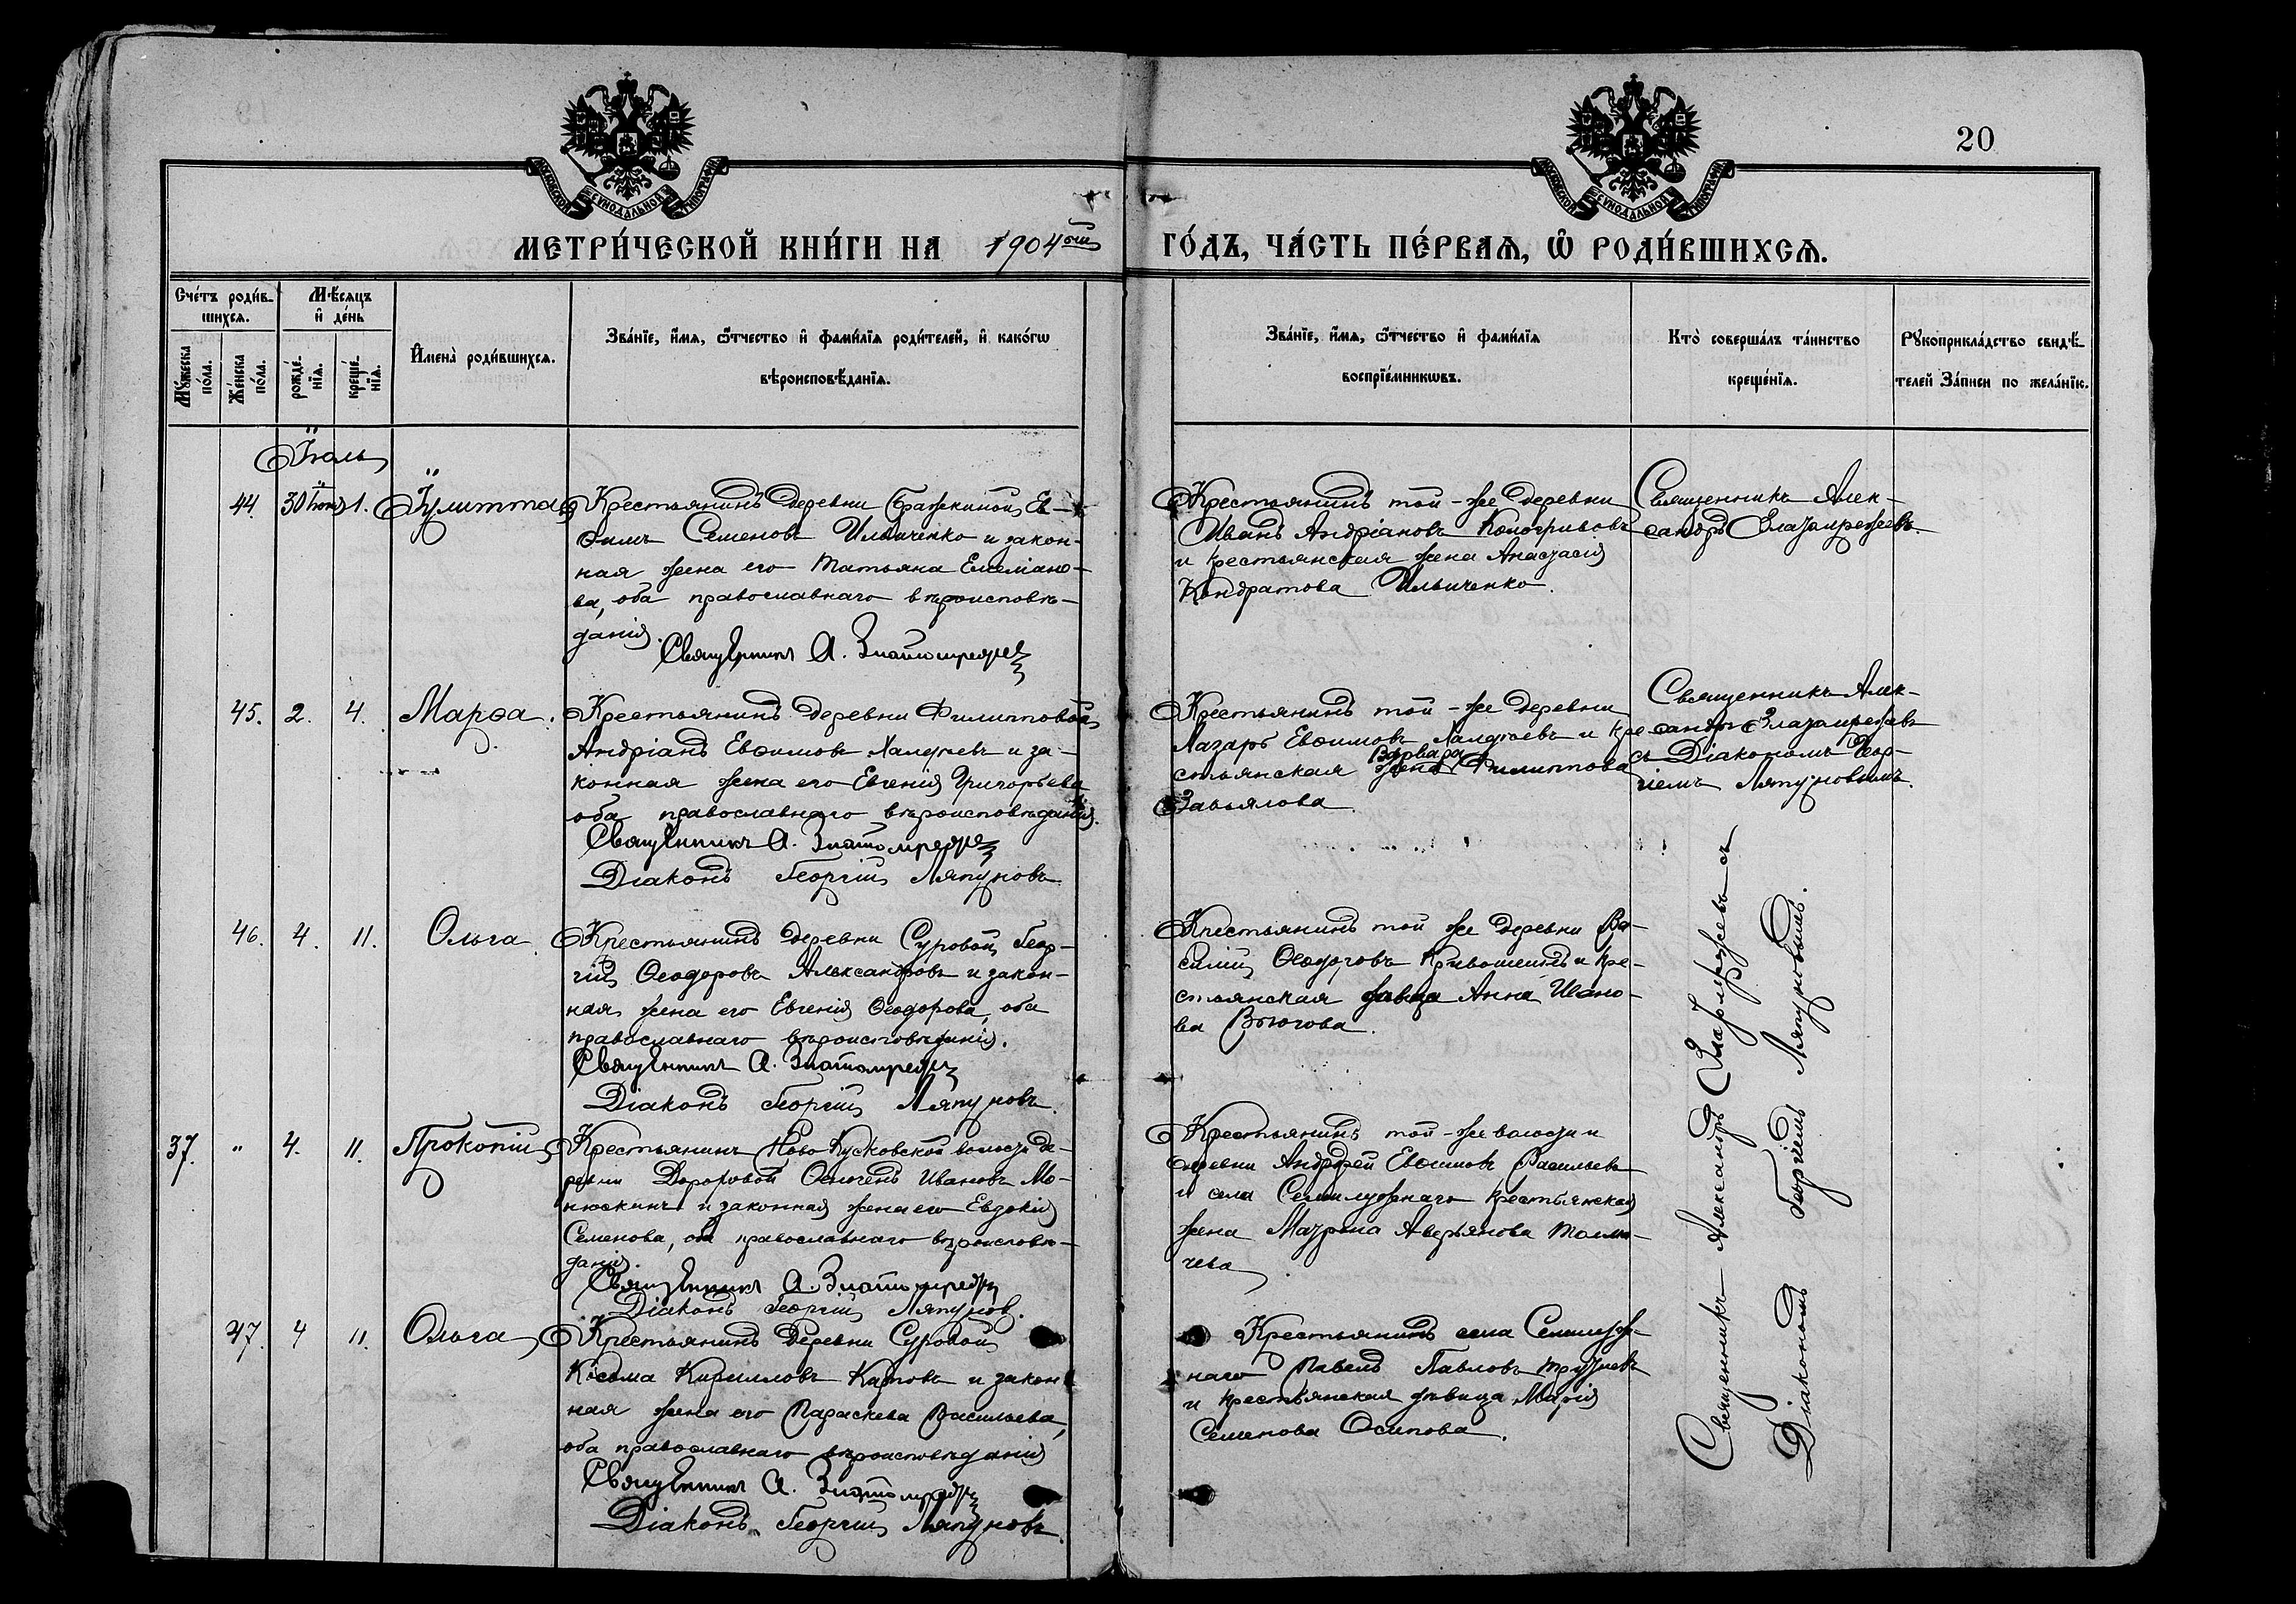 20
МОСКОВСКОЙ СѴНОДАЛЬНОЙ ТИПОГРАФІИ
МОСКОВСКОЙ СѴНОДАЛЬНОЙ ТИПОГРАФІИ
МЕТРИ́ЧЕСКОЙ КНИ́ГИ НА 1904ый ГО́ДЪ, ЧА́СТЬ ПЕ́РВАѦ, Ѽ РОДИ́ВШИХСѦ.
Сче́тъ роди́в-
шихсѧ.
Мꙋ́жеска
по́ла.
Же́нска
по́ла.
Мѣ́сѧцъ
и҆ де́нь
рожде́-
нїѧ.
креще́-
нїѧ.
И҆мена̀ роди́вшихсѧ.
Зва́нїе, и҆́мѧ, ѻ҆́тчество и҆ фами́лїѧ роди́телей, и҆ како́гѡ
вѣроисповѣ́данїѧ.
Зва́нїе, и҆́мѧ, ѻ҆́тчество и҆ фами́лїѧ
воспрїе́мникѡвъ.
Кто̀ соверша́лъ та́инство
креще́нїѧ.
Рꙋкоприкла́дство свидѣ́-
телей За́писи по жела́нїю.
Іюль
44. 30 іюня 1. Іулитта
Крестьянинъ деревни Бражкиной, Ев-
ѳимъ Семеновъ Ильиченко и закон-
ная жена его Татьяна Емелiано-
ва, оба православнаго вѣроисповѣ-
данія.
Священникъ А. Златомрежев
Крестьянинъ той-же деревни
Иванъ Андріановъ Кологривовъ
и крестьянская жена Анастасія
Кондратова Ильиченко.
Священникъ Алек-
сандръ Златомрежевъ.
45. 2. 4. Марѳа.
Крестьянинъ деревни Филипповой
Андріанъ Евѳимовъ Халдѣевъ и за-
конная жена его Евгенія Григорьева
оба православнаго вѣроисповѣданія.
Священникъ А. Златомрежев
Діаконъ Георгій Ляпуновъ
Крестьянинъ той-же деревни
Лазарь Евѳимовъ Халдѣевъ и кре-
стьянская Варвара Филиппова
Завьялова
Священникъ Алек-
сандръ Златомрежевъ
съ Діакономъ Геор-
гіемъ Ляпуновымъ.
46. 4. 11. Ольга
Крестьянинъ деревни Суровой, Геор-
гій Ѳеодоровъ Александровъ и закон-
ная жена его Евгенія Ѳеодорова, оба
православнаго вѣроисповѣданія.
Священникъ А. Златомрежев
Діаконъ Георгій Ляпуновъ.
Крестьянинъ той же деревни Ва-
силій Ѳеодоровъ Кривошеинъ и кре-
стьянская дѣвица Анна Ивано-
ва Вьюгова.
37. " 4. 11. Прокопій
Крестьянинъ Ново-Кусковской волости де-
ревни Дороховой Ѳеогенъ Ивановъ Мо-
нюскинъ и законная жена его Евдокія
Семенова, оба православнаго вѣроисповѣ-
данія.
Священникъ А. Златомрежев
Діаконъ Георгій Ляпунов.
Крестьянинъ той-же волости и
деревни Андрей Евѳимовъ Васильевъ
и села Семилужнаго крестьянская
жена Маѵрина Аверьянова Толма-
чева
47. 4 11. Ольга
Крестьянинъ деревни Суровой
Косьма Кирилловъ Карповъ и закон-
ная жена его Параскева Васильева,
оба православнаго вѣроисповѣданія
Священникъ А. Златомрежев
Діаконъ Георгій Ляпуновъ
Крестьянинъ села Семилуж-
наго Павелъ Павловъ
и крестьянская дѣвица Марія
Семенова Осипова.
Священникъ Александръ Златомрежевъ съ
Діакономъ Георгіемъ Ляпуновымъ.